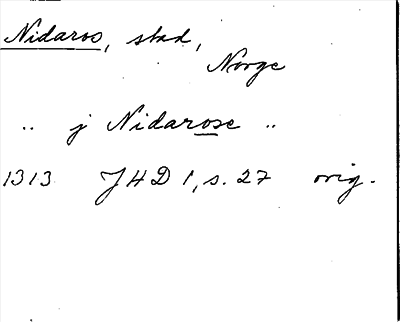 Nidaros, stad,
Norge
.. j Nidarose ..
1313 JHD 1, s. 27 orig.